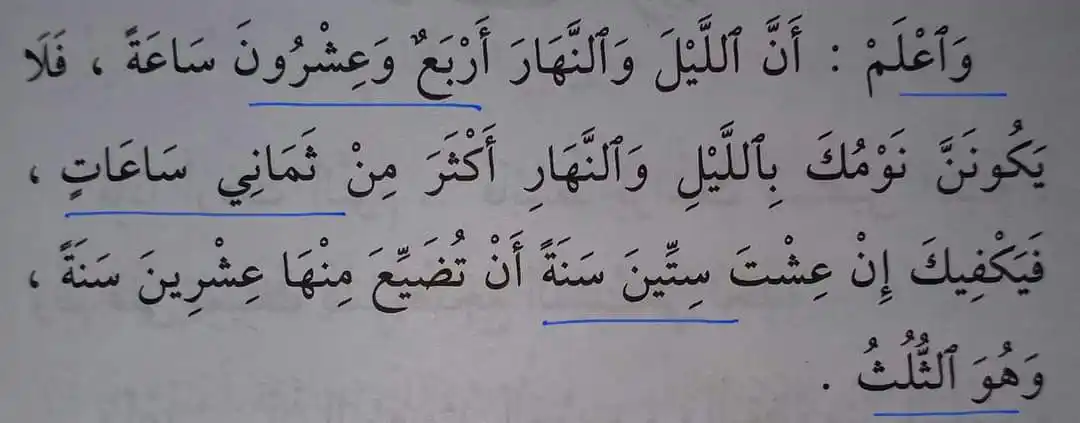 وَٱعْلَمْ : أَنَّ ٱللَّيْلَ وَٱلنَّهَارَ أَرْبَعٌ وَعِشْرُونَ سَاعَةً ، فَلَا
يَكُونَنَّ نَوْمُكَ بِٱللَّيْلِ وَٱلنَّهَارِ أَكْثَرَ مِنْ ثَمَانِي سَاعَاتٍ ،
فَيَكْفِيكَ إِنْ عِشْتَ سِتِّينَ سَنَةً أَنْ تُضَيِّعَ مِنْهَا عِشْرِينَ سَنَةً ،
وَهُوَ ٱلثُّلُثُ .